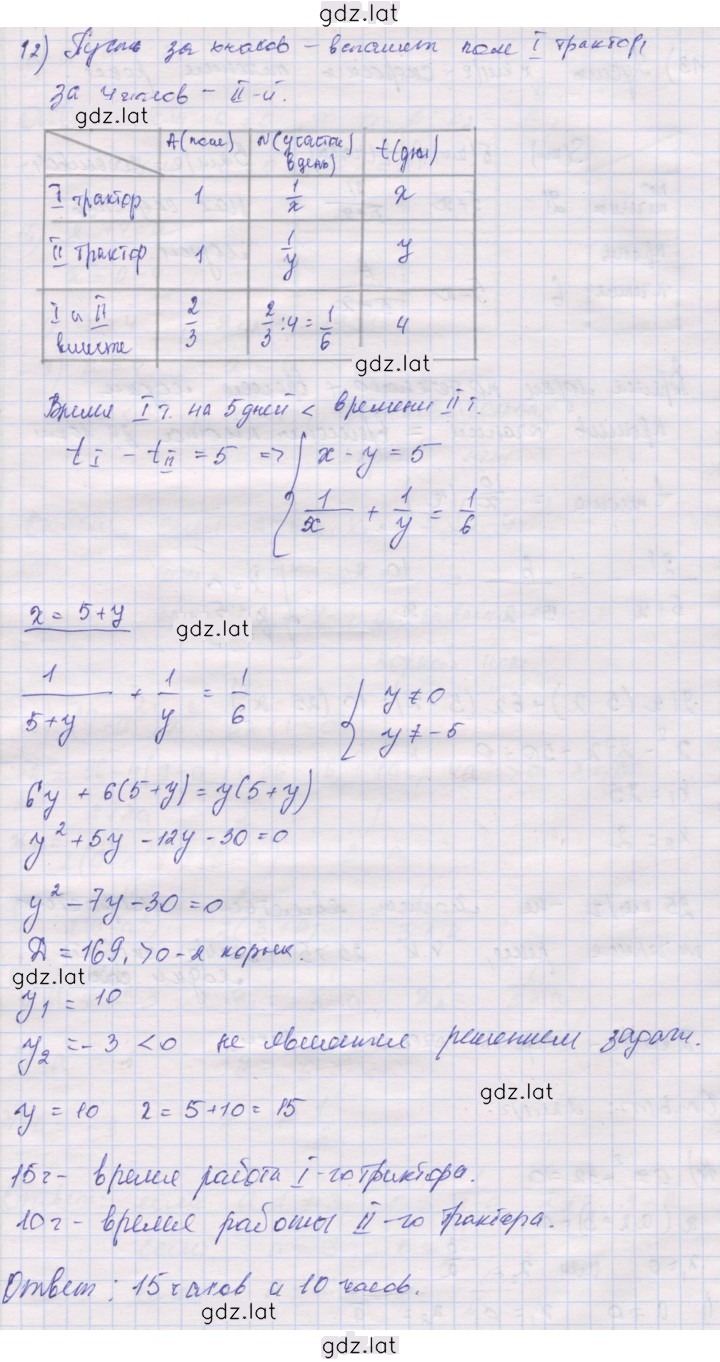 gdz.lat
12) Пусть за x часов – вспашет поле I трактор,
за y часов – II-й.
gdz.lat
A (поле) N (участки в день) t (дни)
I трактор 1 1/x x
II трактор 1 1/y y
I и II вместе 2/3 2/3 : 4 = 1/6 4
gdz.lat
Время I т. на 5 дней < времени II т.
t I – t II = 5 => { x – y = 5
1/x + 1/y = 1/6
x = 5 + y
gdz.lat
1/(5+y) + 1/y = 1/6 { y ≠ 0
y ≠ –5
6y + 6(5+y) = y(5+y)
y² + 5y – 12y – 30 = 0
y² – 7y – 30 = 0
Д = 169, >0 – 2 корня.
gdz.lat
y₁ = 10
y₂ = –3 < 0 не является решением задачи.
gdz.lat
y = 10 2 = 5+10 = 15
15 ч – время работа I-го трактора.
10 ч – время работы II-го трактора.
Ответ: 15 часов и 10 часов.
gdz.lat
gdz.lat